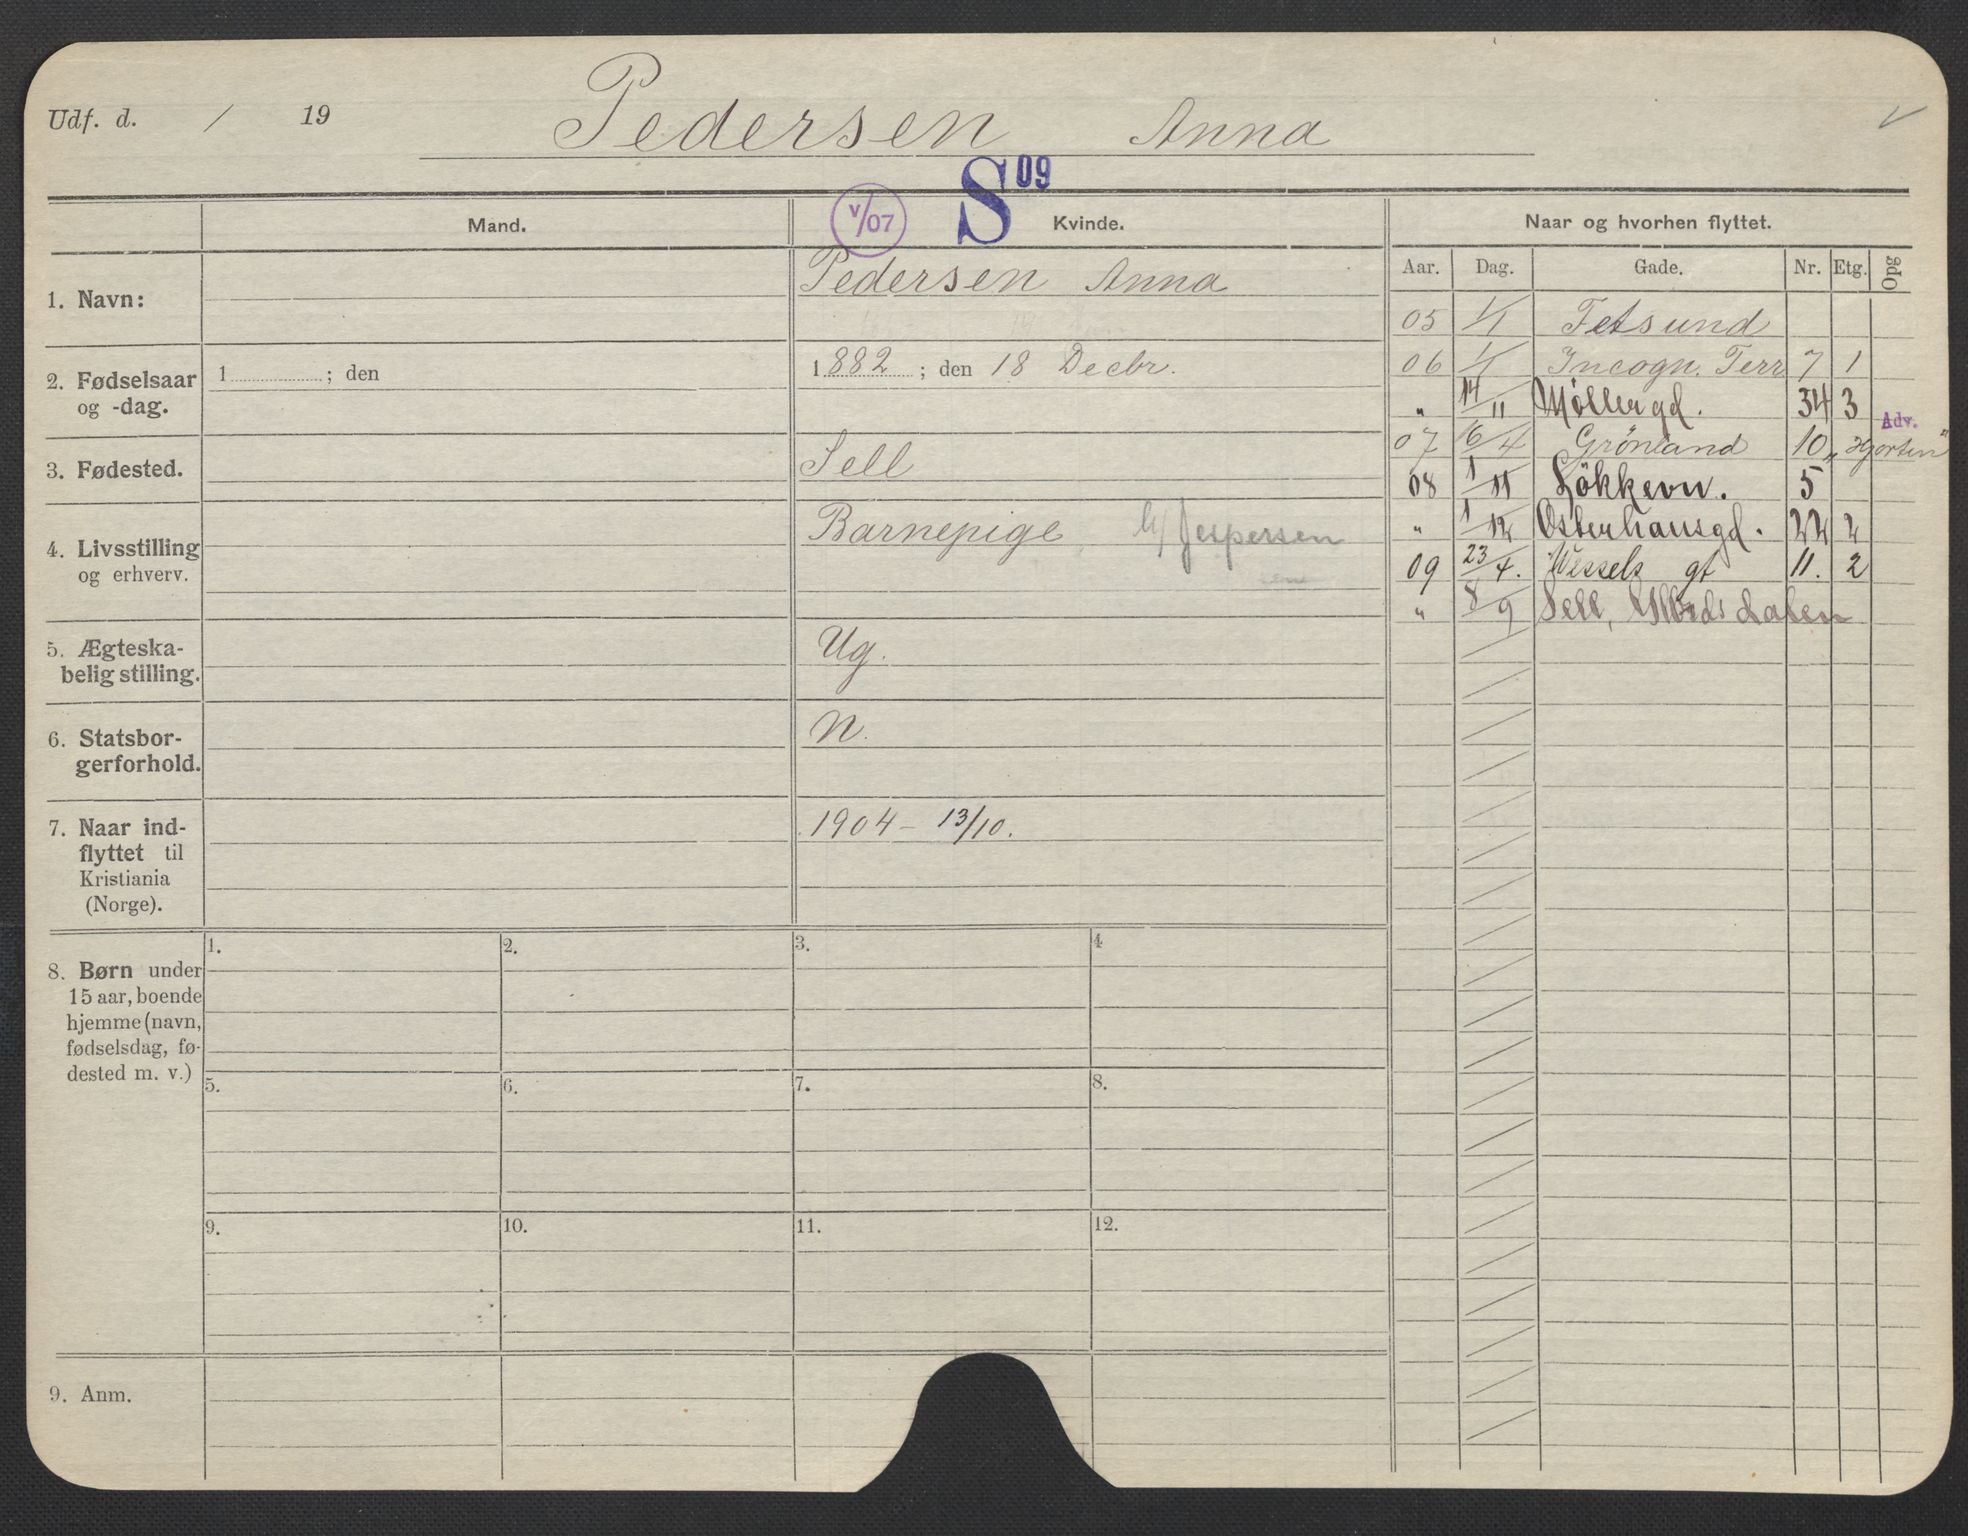 Udf. d. / 19 Pedersen Anna
S 09
V/07
Mand. Kvinde. Naar og hvorhen flyttet.
Aar. Dag. Gade. Nr. Etg. Opg
1. Navn: Pedersen Anna
2. Fødselsaar og -dag. 1 ; den
1882 ; den 18 Decbr.
3. Fødested. Sell
4. Livsstilling og erhverv. Barnepige h/ Jespersen
5. Ægteska-
belig stilling. Ug.
6. Statsbor-
gerforhold. N.
7. Naar ind-
flyttet til
Kristiania
(Norge). 1904 - 13/10.
05 1/1 Fetsund
06 1/1 Incogn. Terr 7 1
" 14/11 Møllergd. 34 3
Adv.
07 16/4 Grønland 10 "Hjorten"
08 1/11 Løkkevn. 5
" 1/12 Osterhausgd. 22 2
09 23/4. Wessels gt 11. 2
" 8/9 Sell,
8. Børn under
15 aar, boende
hjemme (navn,
fødselsdag, fø-
dested m. v.)
1. 2. 3. 4
5. 6. 7. 8.
9. 10. 11. 12.
9. Anm.